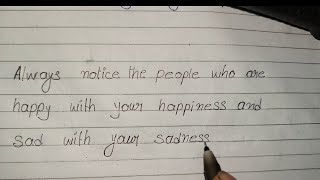 Always notice the people who are
happy with your happiness and
sad with your sadness